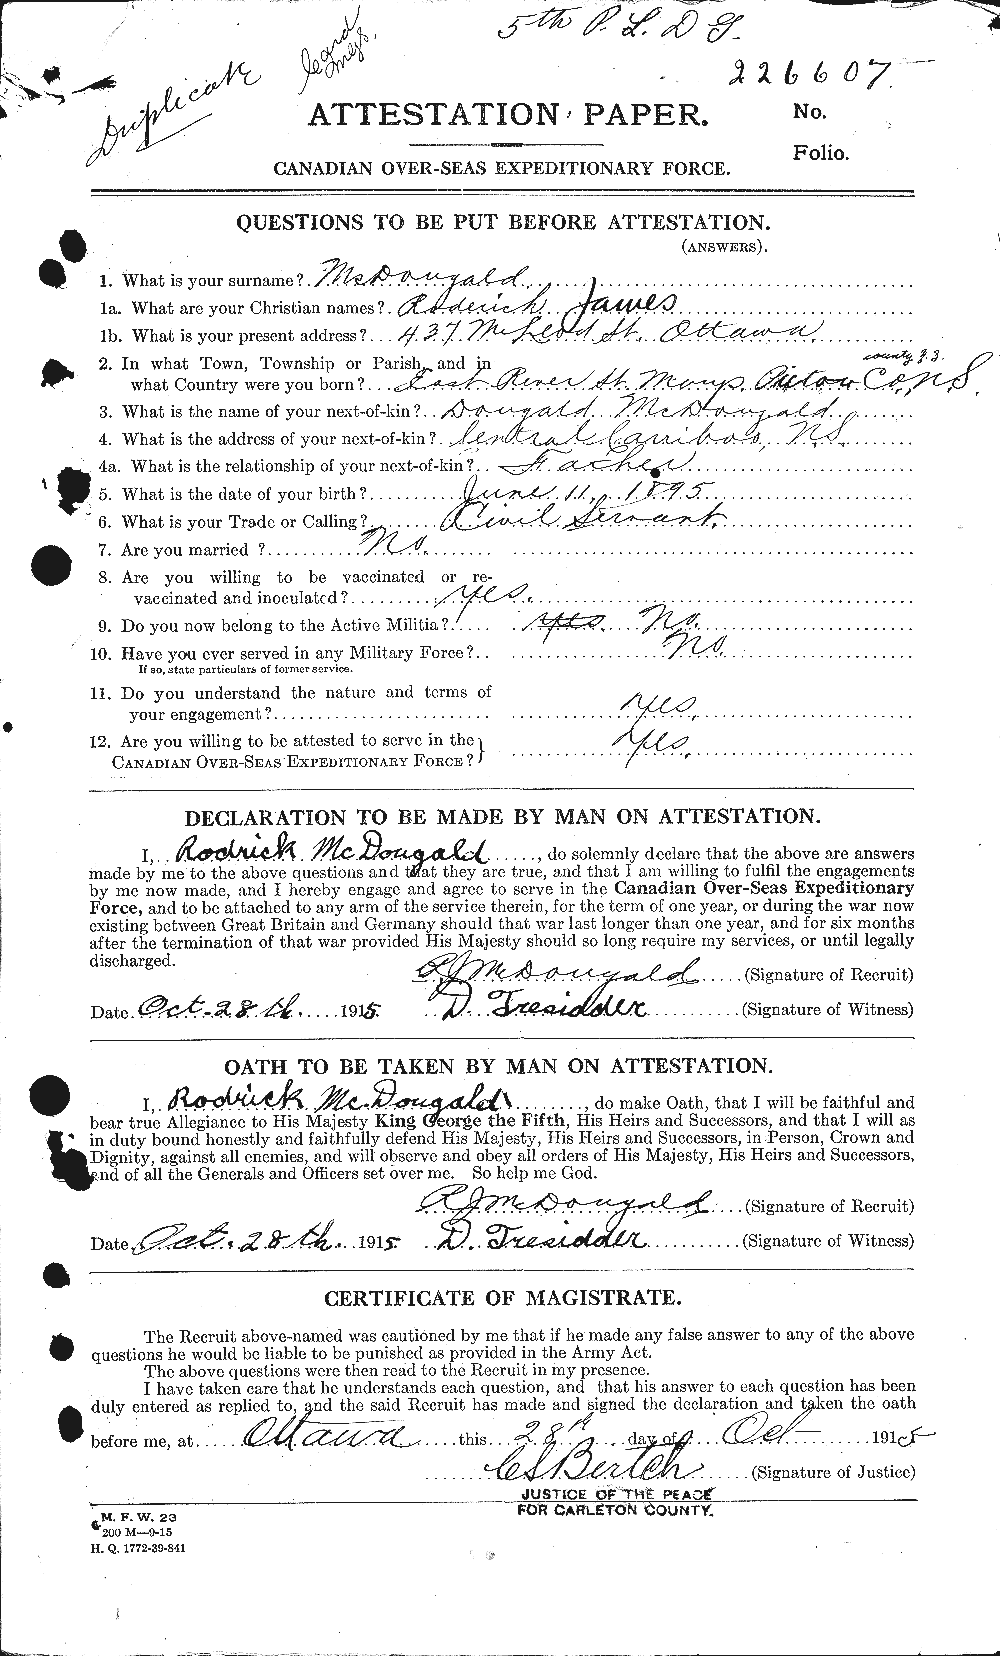 5th P. L. D G.
226607
Duplicate
ATTESTATION PAPER.
No.
Folio.
CANADIAN OVER-SEAS EXPEDITIONARY FORCE.
QUESTIONS TO BE PUT BEFORE ATTESTATION.
(ANSWERS).
1. What is your surname? McDougald
1a. What are your Christian names? Roderick James
1b. What is your present address? 437 McLeod St. Ottawa
2. In what Town, Township or Parish, and in
what Country were you born? East River St. Marys. Pictou Co. N.S.
3. What is the name of your next-of-kin? Dougald McDougald
4. What is the address of your next-of-kin? Central Carribou, N.S.
4a. What is the relationship of your next-of-kin? Father
5. What is the date of your birth? June 11, 1895
6. What is your Trade or Calling? Civil Servant
7. Are you married ? No.
8. Are you willing to be vaccinated or re-
vaccinated and inoculated? Yes.
9. Do you now belong to the Active Militia? Yes No.
10. Have you ever served in any Military Force? No.
If so, state particulars of former service.
11. Do you understand the nature and terms of
your engagement? Yes.
12. Are you willing to be attested to serve in the
CANADIAN OVER-SEAS EXPEDITIONARY FORCE? Yes.
DECLARATION TO BE MADE BY MAN ON ATTESTATION.
I, Rodrick McDougald, do solemnly declare that the above are answers
made by me to the above questions and that they are true, and that I am willing to fulfil the engagements
by me now made, and I hereby engage and agree to serve in the Canadian Over-Seas Expeditionary
Force, and to be attached to any arm of the service therein, for the term of one year, or during the war now
existing between Great Britain and Germany should that war last longer than one year, and for six months
after the termination of that war provided His Majesty should so long require my services, or until legally
discharged.
R J McDougald (Signature of Recruit)
Date Oct. 28th 1915 D. Tresidder (Signature of Witness)
OATH TO BE TAKEN BY MAN ON ATTESTATION.
I, Rodrick McDougald, do make Oath, that I will be faithful and
bear true Allegiance to His Majesty King George the Fifth, His Heirs and Successors, and that I will as
in duty bound honestly and faithfully defend His Majesty, His Heirs and Successors, in Person, Crown and
Dignity, against all enemies, and will observe and obey all orders of His Majesty, His Heirs and Successors,
and of all the Generals and Officers set over me. So help me God.
R J McDougald (Signature of Recruit)
Date Oct. 28th 1915 D. Tresidder (Signature of Witness)
CERTIFICATE OF MAGISTRATE.
The Recruit above-named was cautioned by me that if he made any false answer to any of the above
questions he would be liable to be punished as provided in the Army Act.
The above questions were then read to the Recruit in my presence.
I have taken care that he understands each question, and that his answer to each question has been
duly entered as replied to, and the said Recruit has made and signed the declaration and taken the oath
before me, at Ottawa this 28th day of Oct 1915
CS Bertch (Signature of Justice)
JUSTICE OF THE PEACE
FOR CARLETON COUNTY.
M. F. W. 23
200 M—9-15
H. Q. 1772-39-841